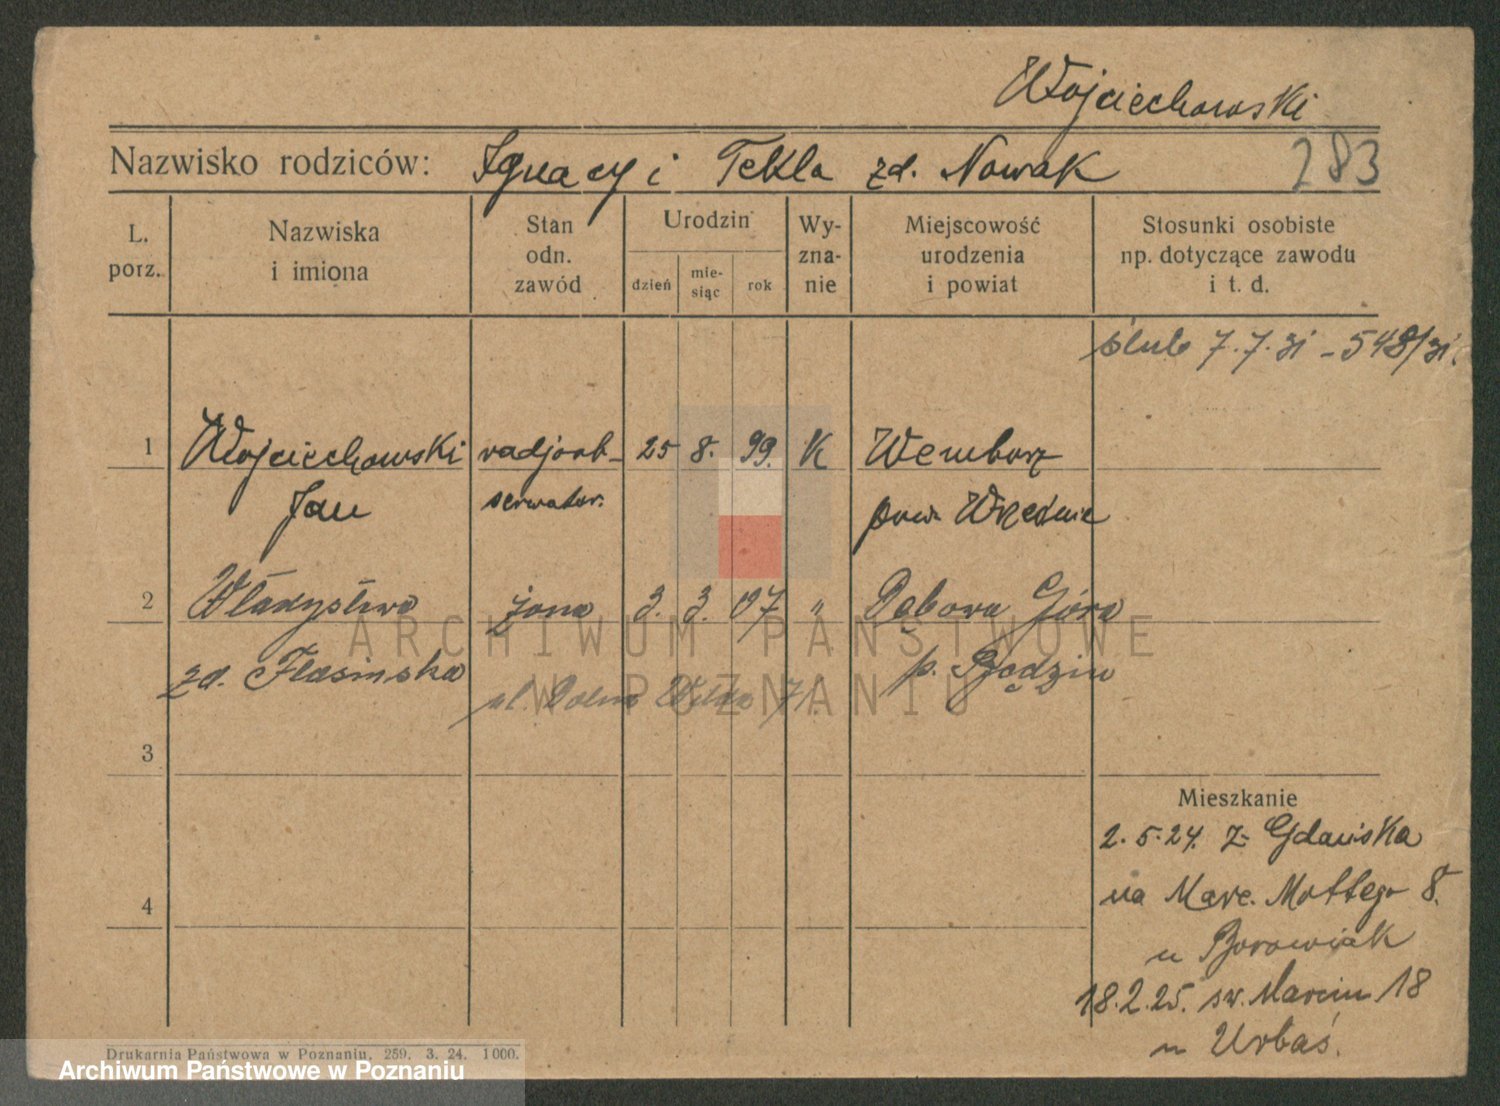 Wojciechowski
Nazwisko rodziców: Ignacy i Tekla zd. Nowak 283
L. porz.
Nazwiska i imiona
Stan odn. zawód
Urodzin
dzień
mie- siąc
rok
Wy- zna- nie
Miejscowość urodzenia i powiat
Stosunki osobiste np. dotyczące zawodu i t. d.
ślub 7.7.31 - 548/31.
1 Wojciechowski radjoob- 25 8. 99. K Wemborz
Jan serwator. pow. Września
2 Władysława żona 3. 3. 07 " Dąbowa Góra
zd. Flasińska p. Będzin
ul. Dolna Wilda 71.
ARCHIWUM PAŃSTWOWE
W POZNANIU
3
Mieszkanie
2.5.24. z Gdańska
4
na Marc. Mottego 8.
u Borowiak
18.2.25. św. Marcin 18
u Urbaś.
Drukarnia Państwowa w Poznaniu. 259. 3. 24. 1000.
Archiwum Państwowe w Poznaniu